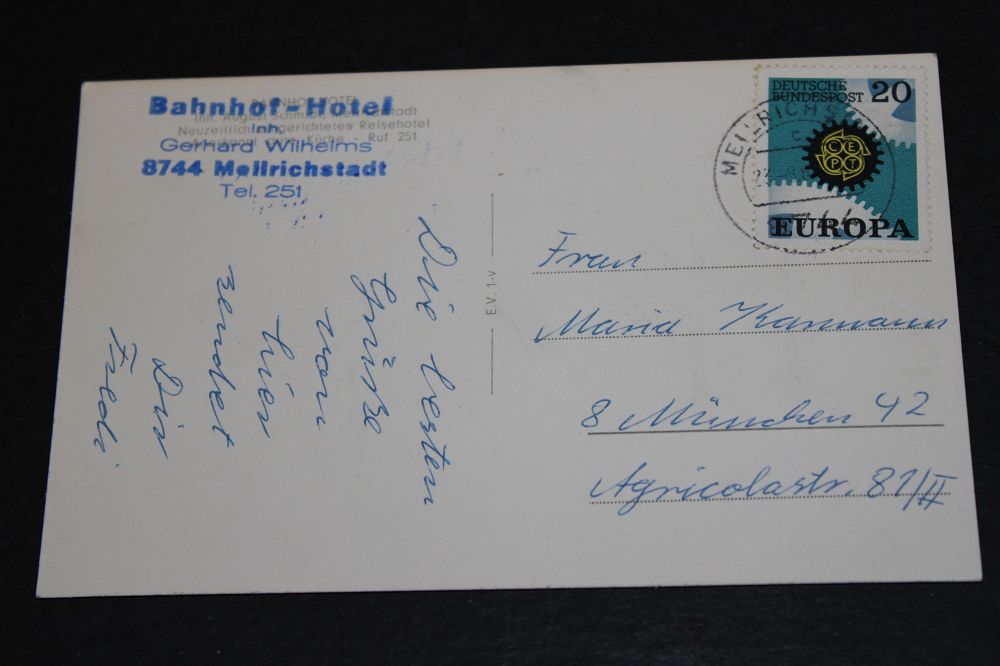 Bahnhof-Hotel
Inh.
Gerhard Wilhelms
8744 Mellrichstadt
Tel. 251
BAHNHOF-HOTEL
Inh. August Schmidt, Mellrichstadt
Neuzeitlich eingerichtetes Reisehotel
Küche - Ruf 251
Die besten
Grüße
von
hier
sendet
Dir
Fredi
E.V. 1-v
DEUTSCHE
BUNDESPOST 20
CEPT
EUROPA
MELLRICHS
c
Frau
Maria Karmann
8 München 42
Agricolastr. 81/II